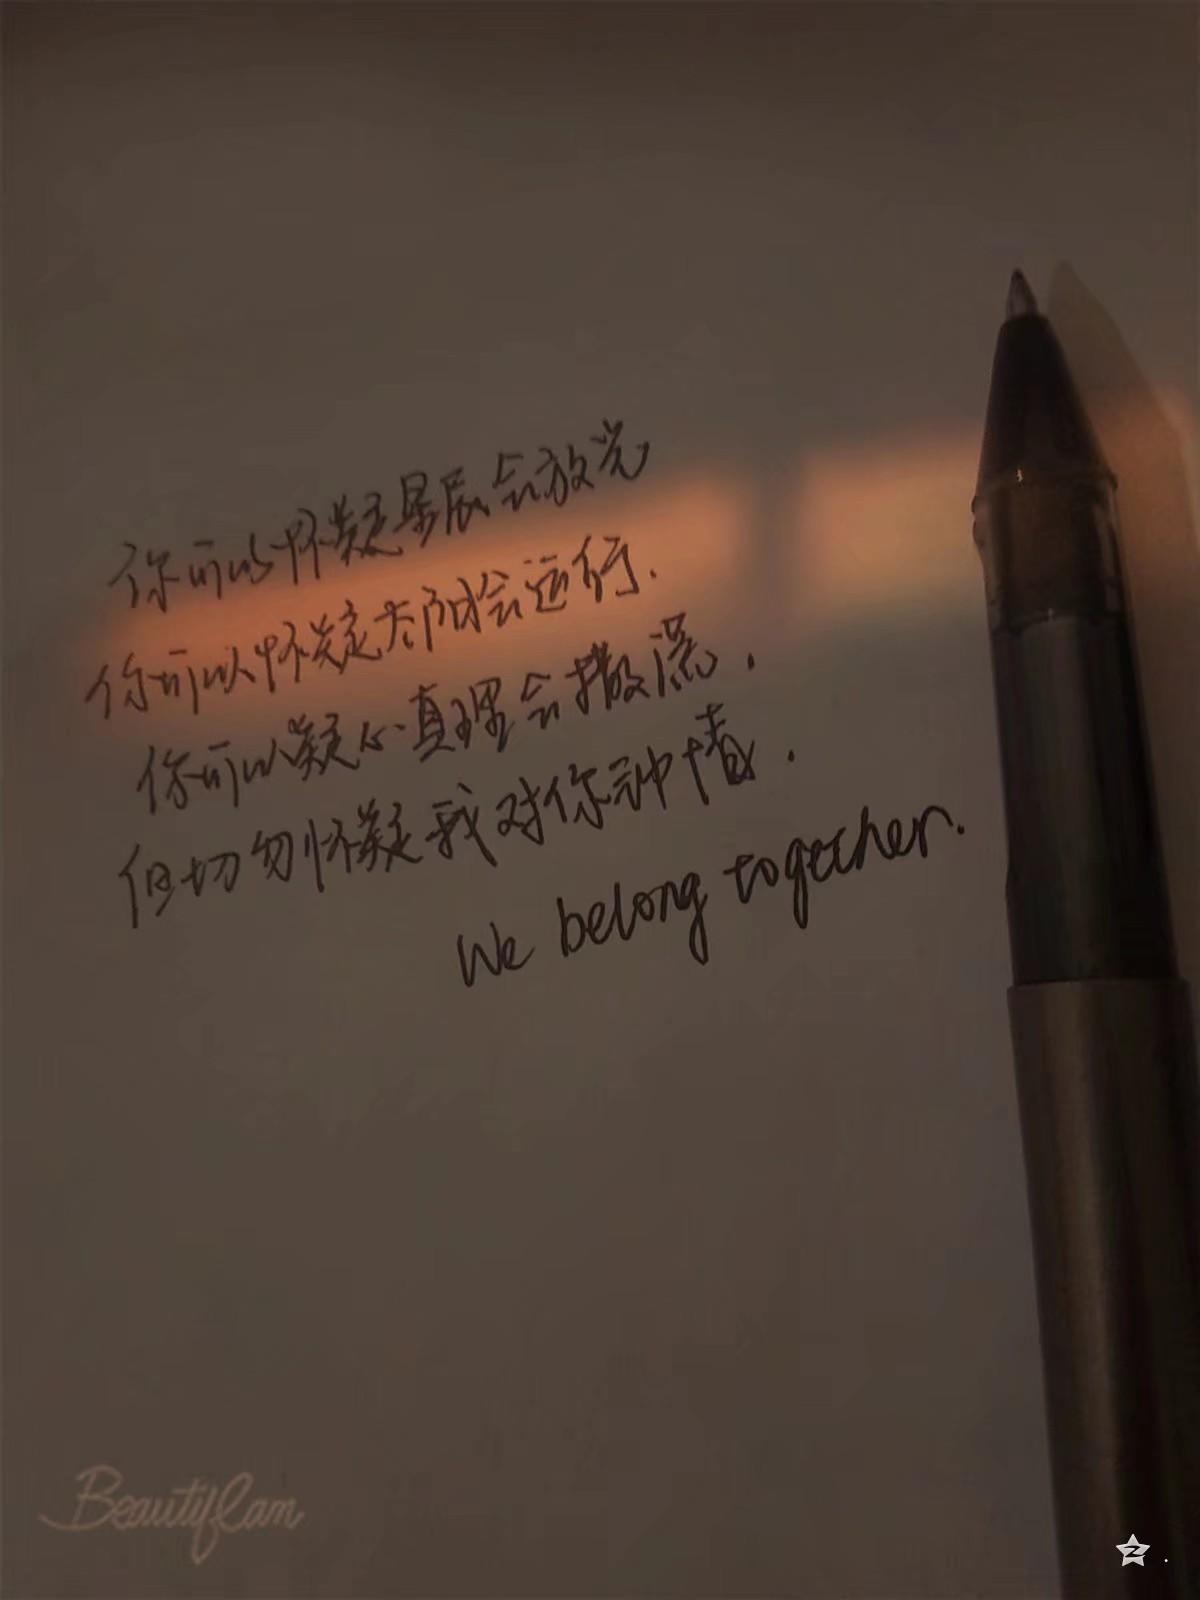 你可以怀疑星辰会放光
你可以怀疑太阳会运行.
你可以疑心真理会撒谎.
但切勿怀疑我对你钟情.
We belong together.
Beautiflan